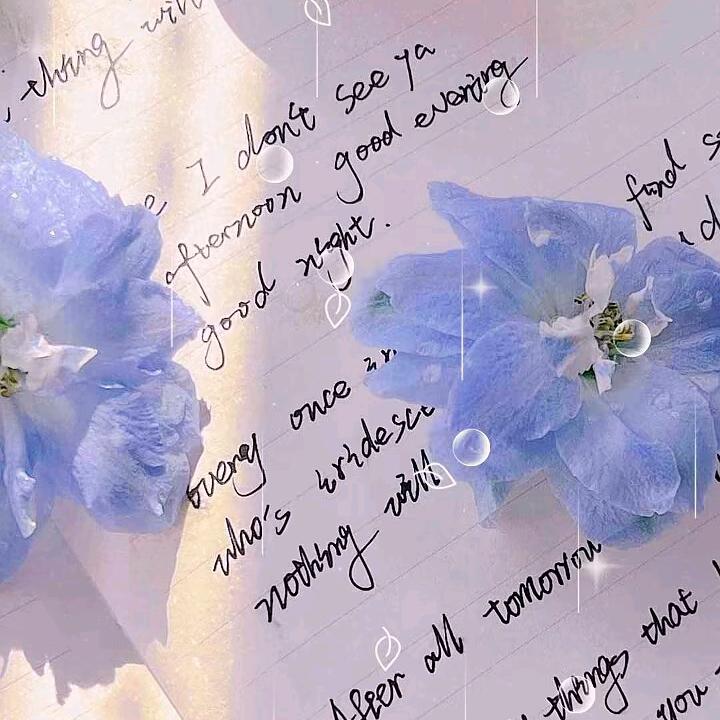 thing with
I don't see ya
afternoon good evening
good night.
find
every once in
who's iridesce
nothing will
After all tomorrow
things that
you